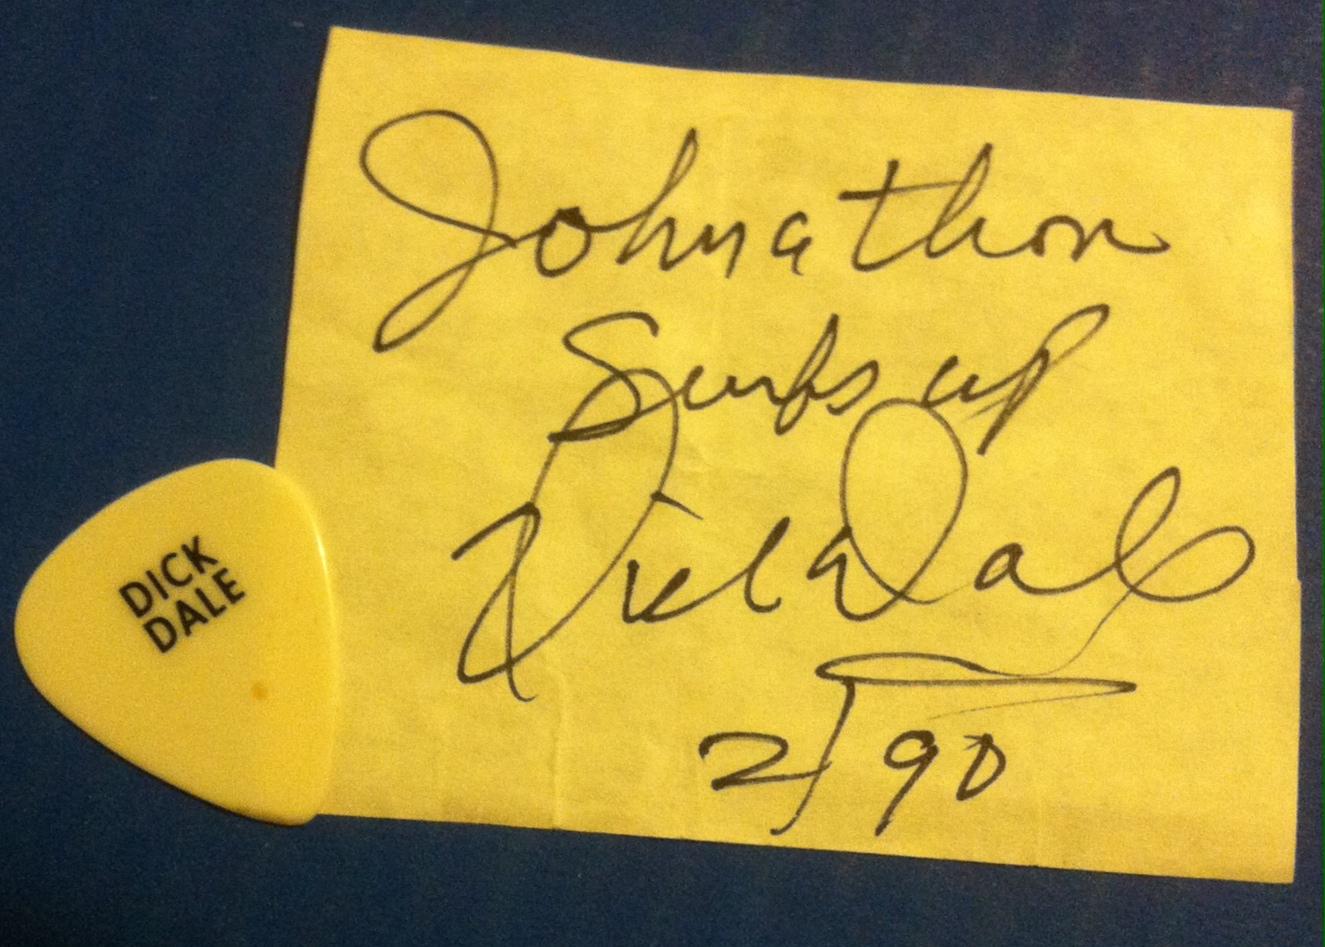 Johnathon
Surfs up
Dick Dale
2/90
DICK
DALE